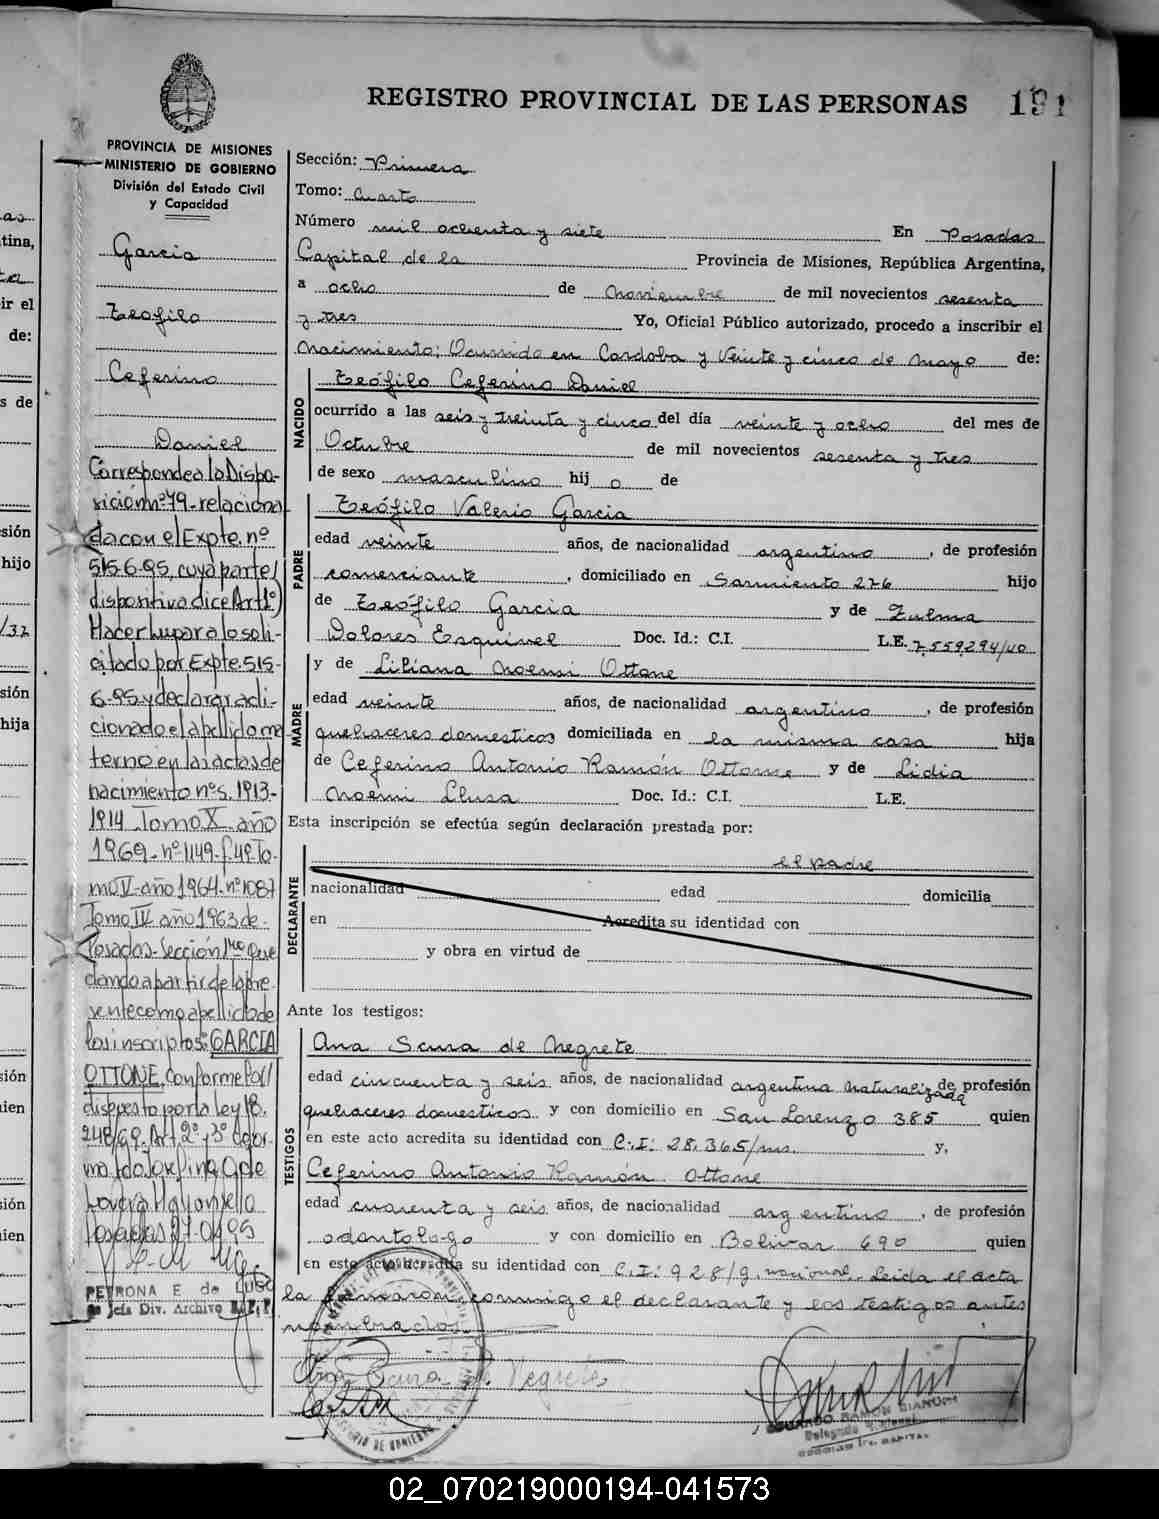 REGISTRO PROVINCIAL DE LAS PERSONAS 191
PROVINCIA DE MISIONES
MINISTERIO DE GOBIERNO
División del Estado Civil
y Capacidad
Garcia
Teofilo
Ceferino
Daniel
Corresponde a la Dispo-
sición nº 79- relaciona
da con el Expte. nº
515-6-95, cuya parte/
dispositiva dice Art 1º)
Hacer lugar a lo soli-
citado por Expte. 515-
6-95 y declarar adi-
cionado el apellido ma
terno en las actas de
nacimiento nºs. 1913-
1914 Tomo X año
1969- nº 1149- f. 49 To-
mo V- año 1964- nº 1087
Tomo IV año 1963 de
Posadas- Sección 1ra Que
dando a partir de la pre
sente como apellido de
los inscriptos: GARCIA
OTTONE, conforme lo//
dispuesto por la ley 18.
248/69. Art. 2º y 3º
Posadas 27-04-95
PETRONA E de LUGO
Jefa Div. Archivo
Sección: Primera
Tomo: Cuarto
Número mil ochenta y siete En Posadas
Capital de la Provincia de Misiones, República Argentina,
a ocho de Noviembre de mil novecientos sesenta
y tres Yo, Oficial Público autorizado, procedo a inscribir el
Nacimiento; Ocurrido en Cordoba y Veinte y cinco de Mayo de:
NACIDO
Teófilo Ceferino Daniel
ocurrido a las seis y treinta y cinco del día veinte y ocho del mes de
Octubre de mil novecientos sesenta y tres
de sexo masculino hij o de
PADRE
Teófilo Valerio Garcia
edad veinte años, de nacionalidad argentino, de profesión
comerciante, domiciliado en Sarmiento 276 hijo
de Teófilo Garcia y de Zulma
Dolores Esquivel Doc. Id.: C.I. L.E. 7.559.294/40
MADRE
y de Liliana Noemi Ottone
edad veinte años, de nacionalidad argentino, de profesión
quehaceres domesticos domiciliada en la misma casa hija
de Ceferino Antonio Ramón Ottone y de Lidia
Noemi Llusa Doc. Id.: C.I. L.E.
Esta inscripción se efectúa según declaración prestada por:
DECLARANTE
el padre
nacionalidad edad domicilia
en Acredita su identidad con
y obra en virtud de
Ante los testigos:
TESTIGOS
Ana Scura de Negrete
edad cincuenta y seis años, de nacionalidad argentina naturalizada de profesión
quehaceres domesticos y con domicilio en San Lorenzo 385 quien
en este acto acredita su identidad con C.I: 28.365/ms. y,
Ceferino Antonio Ramón Ottone
edad cuarenta y seis años, de nacionalidad argentino, de profesión
odontologo y con domicilio en Bolivar 690 quien
en este acto acredita su identidad con C.I: 928/g. nacional. Leida el acta
la firmaron conmigo el declarante y los testigos antes
nombrados.
Ana Scura de Negrete
EDUARDO RAMON BIANCHI
Delegado Seccional
SECCION 1ra. CAPITAL
02_070219000194-041573